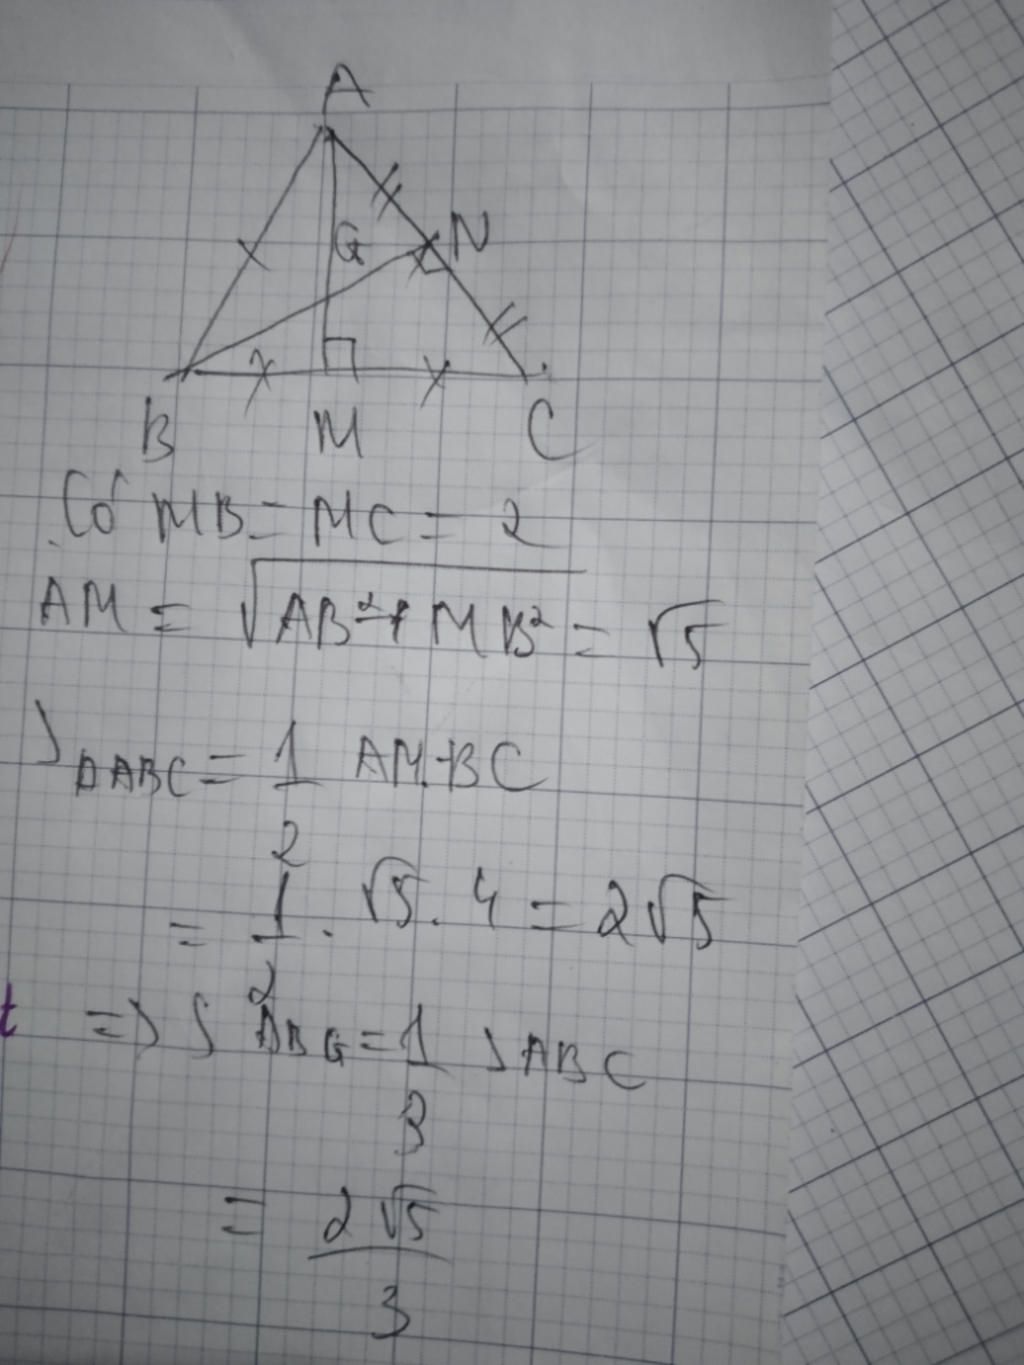 A
G
N
B M C
Có MB = MC = 2
AM = √AB² + MB² = √5
S ΔABC = 1/2 AM.BC
= 1/2 . √5 . 4 = 2√5
t => S ABG = 1/3 S ABC
= 2√5/3